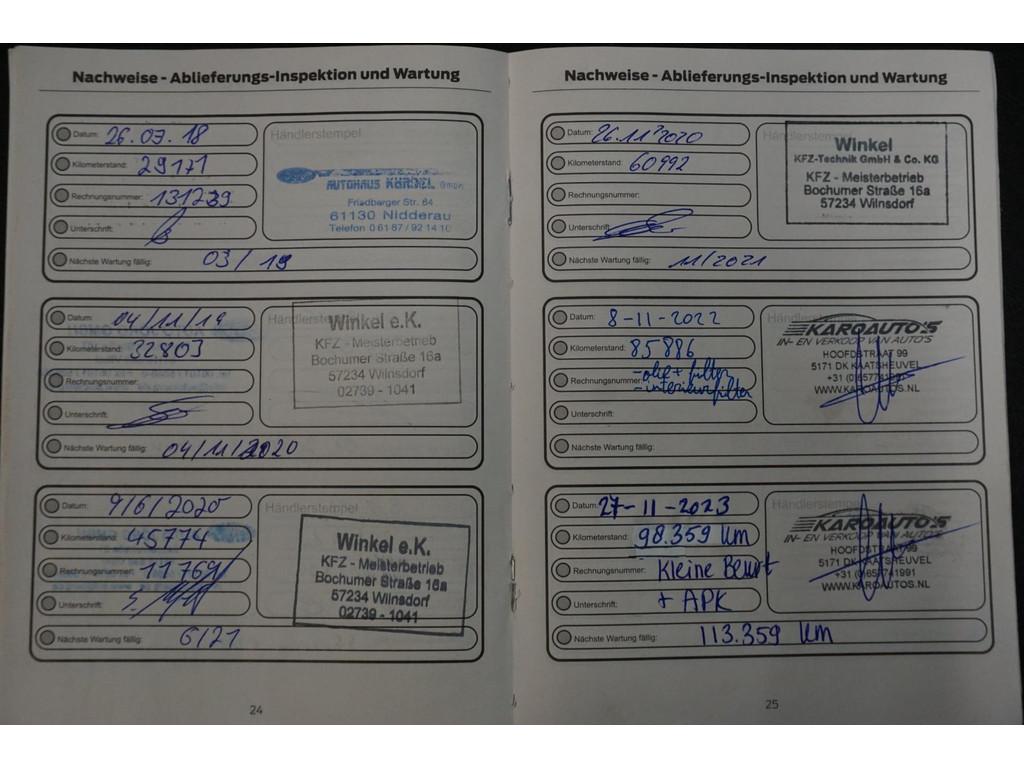 Nachweise - Ablieferungs-Inspektion und Wartung
Datum: 26.03.18
Händlerstempel
Kilometerstand: 29171
AUTOHAUS KUNZEL GmbH
Rechnungsnummer: 131239
Friedberger Str. 64
61130 Nidderau
Unterschrift:
Telefon 0 61 87 / 92 14 10
Nächste Wartung fällig: 03/19
Datum: 04/11/19
Händlerstempel
Winkel e.K.
Kilometerstand: 32.803
KFZ - Meisterbetrieb
Bochumer Straße 16a
Rechnungsnummer:
57234 Wilnsdorf
02739 - 1041
Unterschrift:
Nächste Wartung fällig: 04/11/2020
Datum: 9/6/2020
Händlerstempel
Kilometerstand: 45774
Winkel e.K.
KFZ - Meisterbetrieb
Rechnungsnummer: 11769
Bochumer Straße 16a
57234 Wilnsdorf
Unterschrift:
02739 - 1041
Nächste Wartung fällig: 6/21
24
Nachweise - Ablieferungs-Inspektion und Wartung
Datum: 26.11.2020
Händlerstempel
Winkel
KFZ-Technik GmbH & Co. KG
Kilometerstand: 60992
KFZ - Meisterbetrieb
Bochumer Straße 16a
Rechnungsnummer:
57234 Wilnsdorf
Unterschrift:
Nächste Wartung fällig: 11/2021
Datum: 8-11-2022
Händlerstempel
KAROAUTO'S
IN- EN VERKOOP VAN AUTO'S
Kilometerstand: 85886
HOOFDSTRAAT 99
5171 DK KAATSHEUVEL
Rechnungsnummer: -olie + filter
-interieurfilter
WWW.KAROAUTOS.NL
Unterschrift:
Nächste Wartung fällig:
Datum: 27-11-2023
Händlerstempel
KAROAUTO'S
IN- EN VERKOOP VAN AUTO'S
Kilometerstand: 98.359 km
HOOFDSTRAAT 99
5171 DK KAATSHEUVEL
Rechnungsnummer: Kleine Beurt
WWW.KAROAUTOS.NL
Unterschrift: + APK
Nächste Wartung fällig: 113.359 km
25